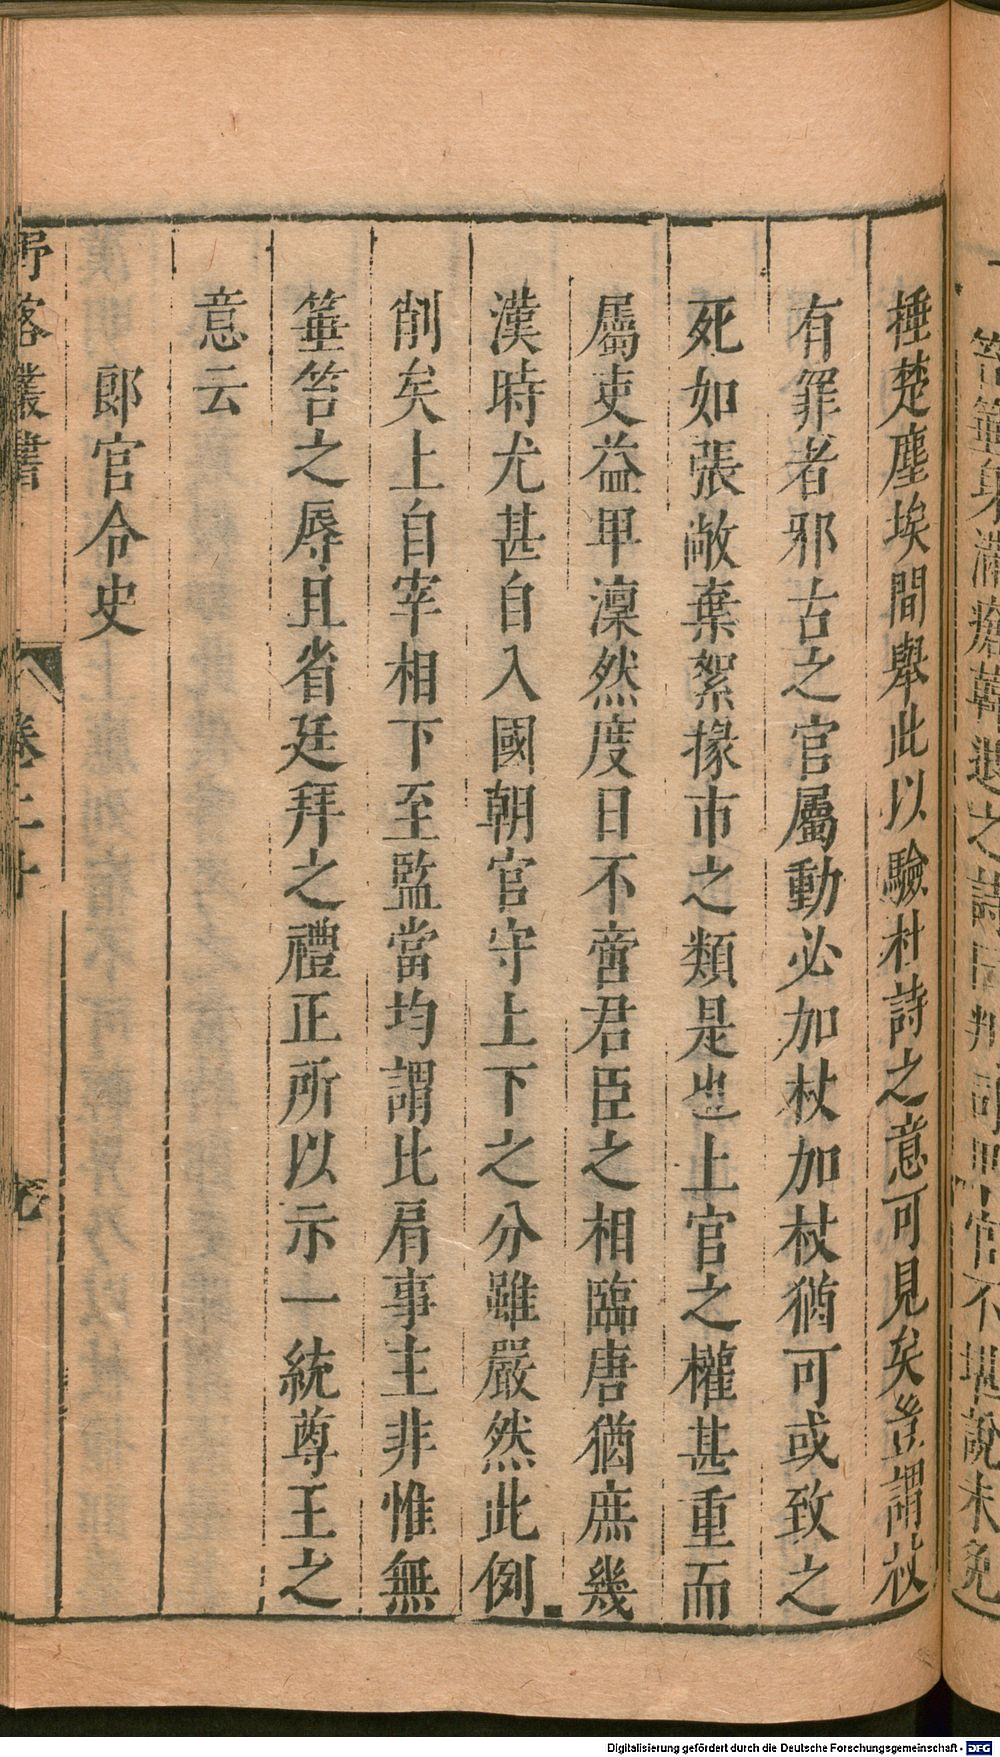 捶楚塵埃間舉此以驗杜詩之意可見矣豈謂杖
有罪者邪古之官屬動必加杖加杖猶可或致之
死如張敞棄絮掾市之類是也上官之權甚重而
屬吏益卑凜然度日不啻君臣之相臨唐猶庶幾
漢時尤甚自入國朝官守上下之分雖嚴然此例
削矣上自宰相下至監當均謂比肩事主非惟無
箠笞之辱且省廷拜之禮正所以示一統尊王之
意云
郎官令史
野客叢書
卷二十
Digitalisierung gefördert durch die Deutsche Forschungsgemeinschaft - DFG